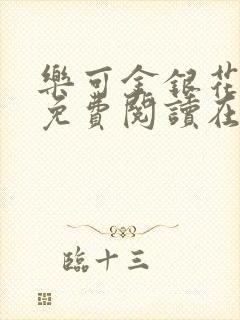 樂可金銀花
免費閱讀在
臨十三